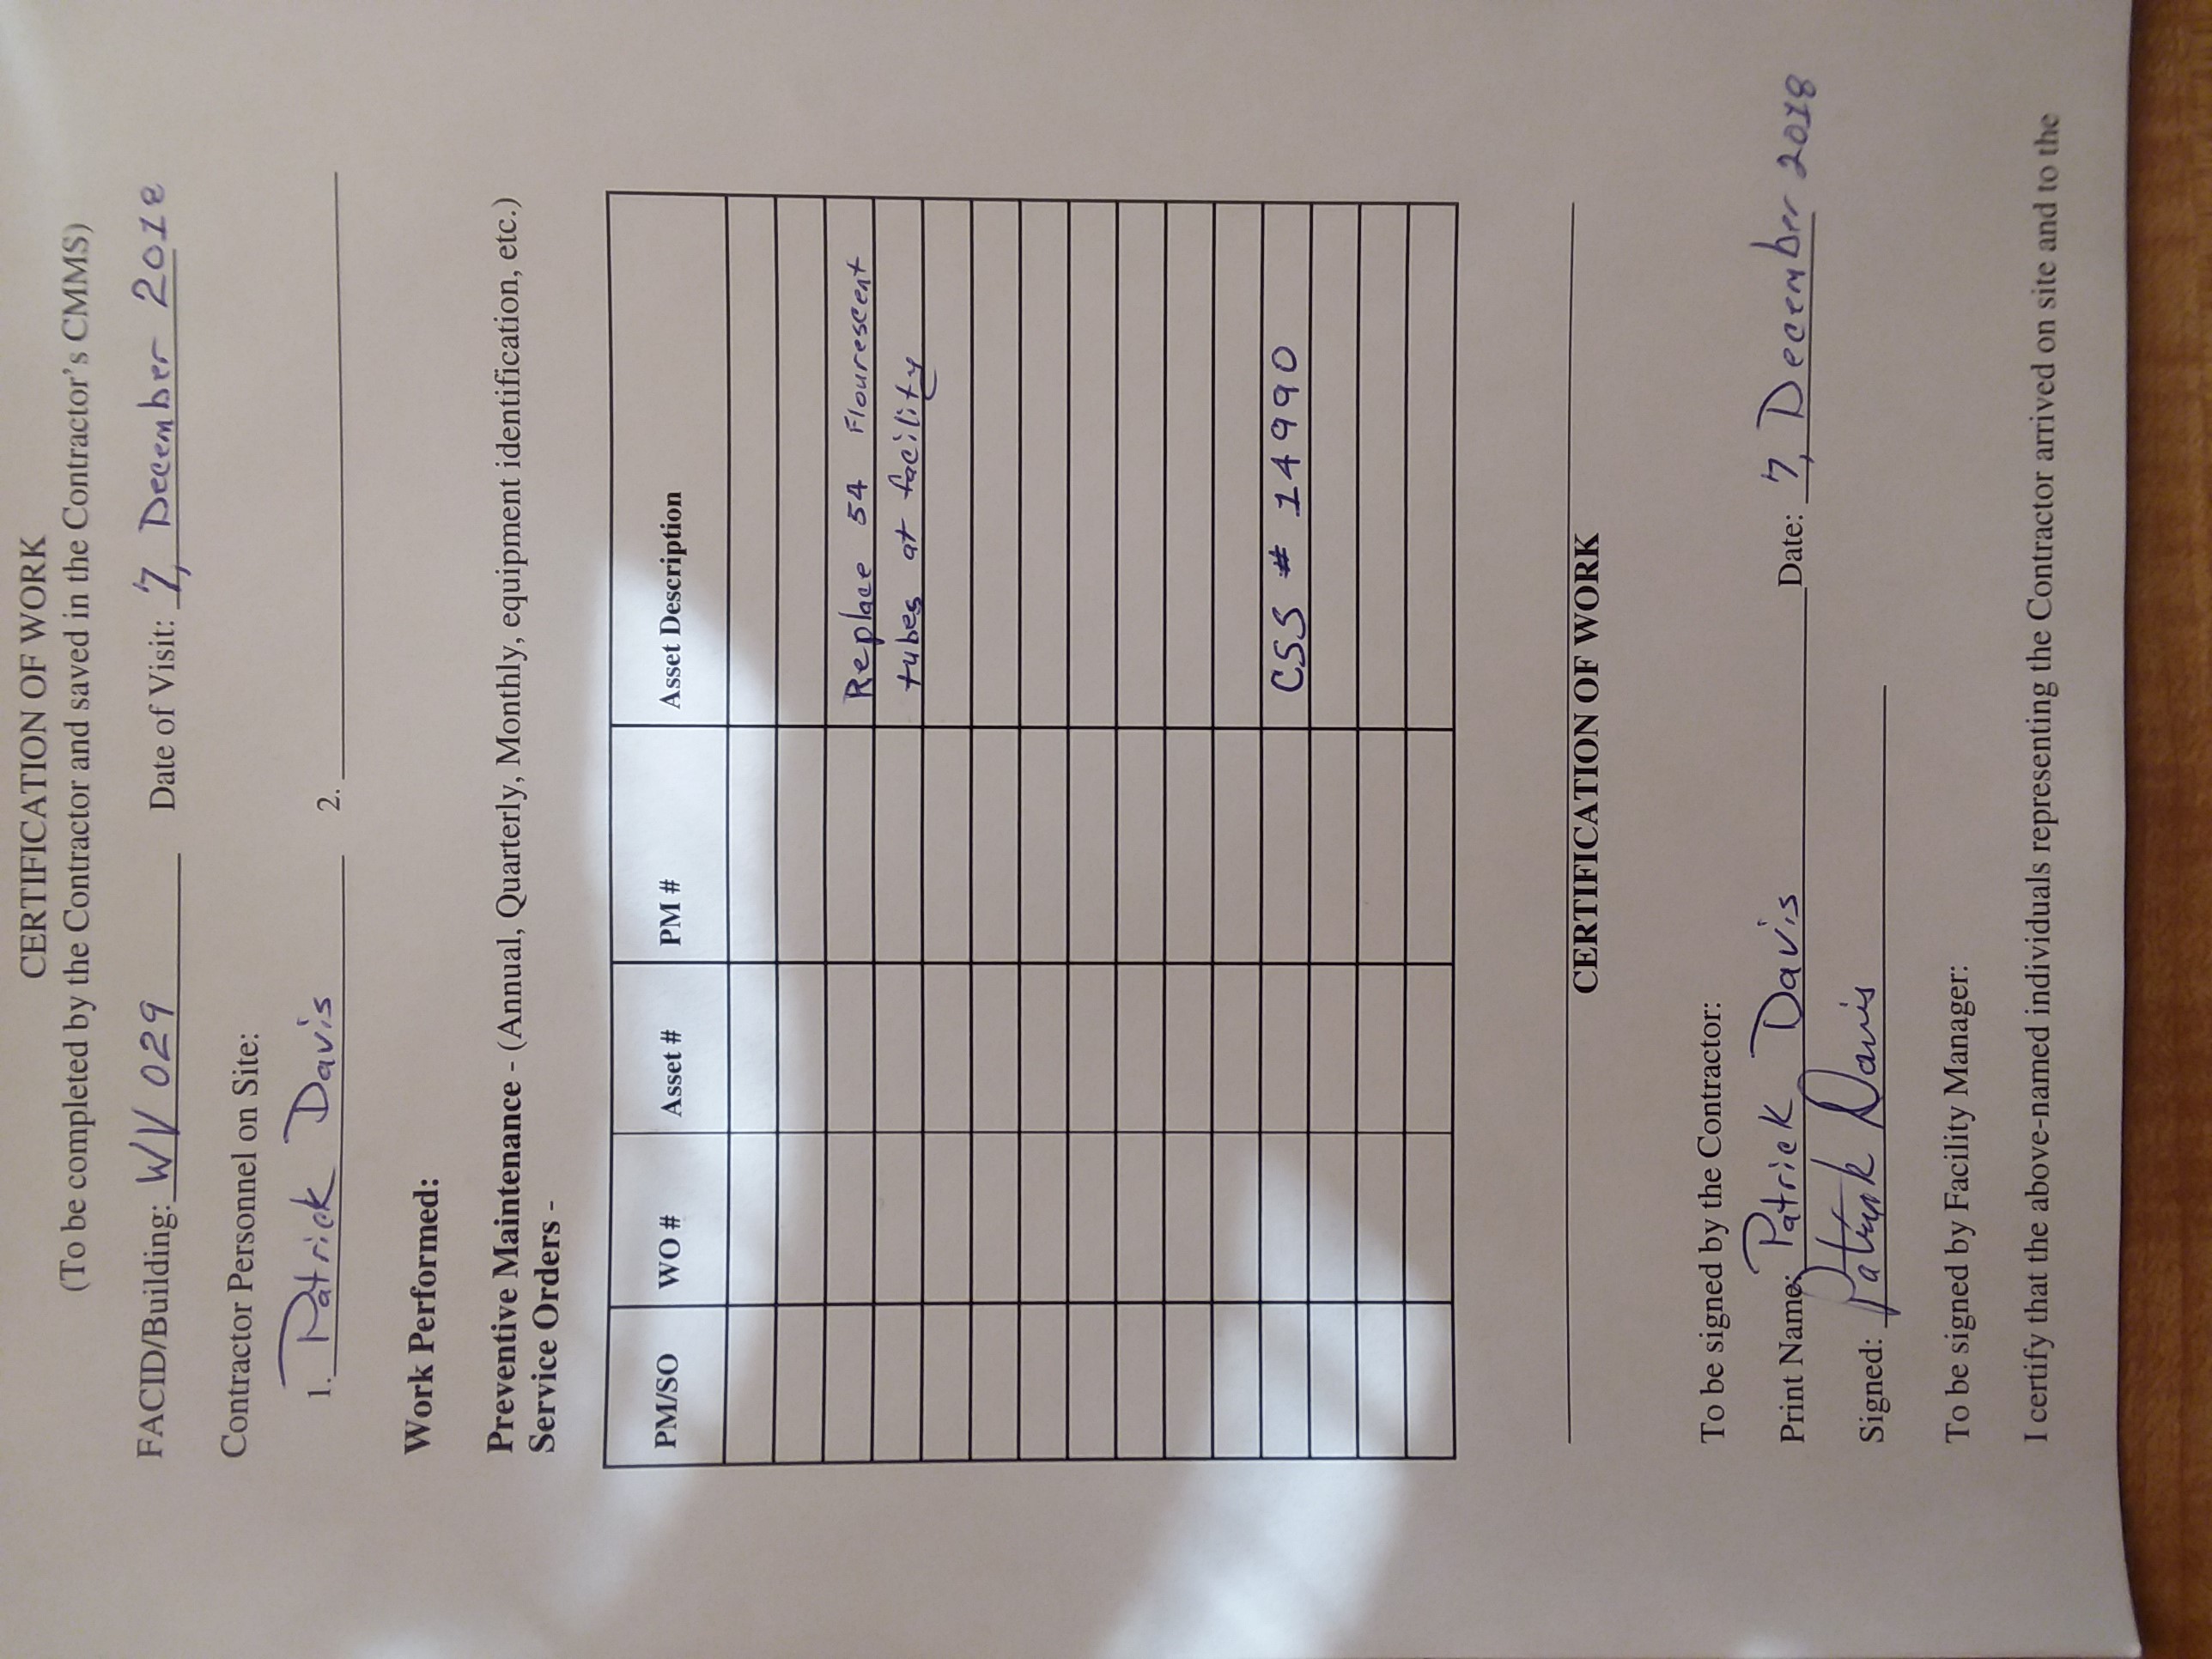 CERTIFICATION OF WORK
(To be completed by the Contractor and saved in the Contractor's CMMS)
FACID/Building: WV 029 Date of Visit: 7, December 2018
Contractor Personnel on Site:
1. Patrick Davis 2.
Work Performed:
Preventive Maintenance - (Annual, Quarterly, Monthly, equipment identification, etc.)
Service Orders -
PM/SO WO # Asset # PM # Asset Description
Replace 54 Flourescent
tubes at facility
CSS # 14990
CERTIFICATION OF WORK
To be signed by the Contractor:
Print Name: Patrick Davis Date: 7, December 2018
Signed: Patrick Davis
To be signed by Facility Manager:
I certify that the above-named individuals representing the Contractor arrived on site and to the